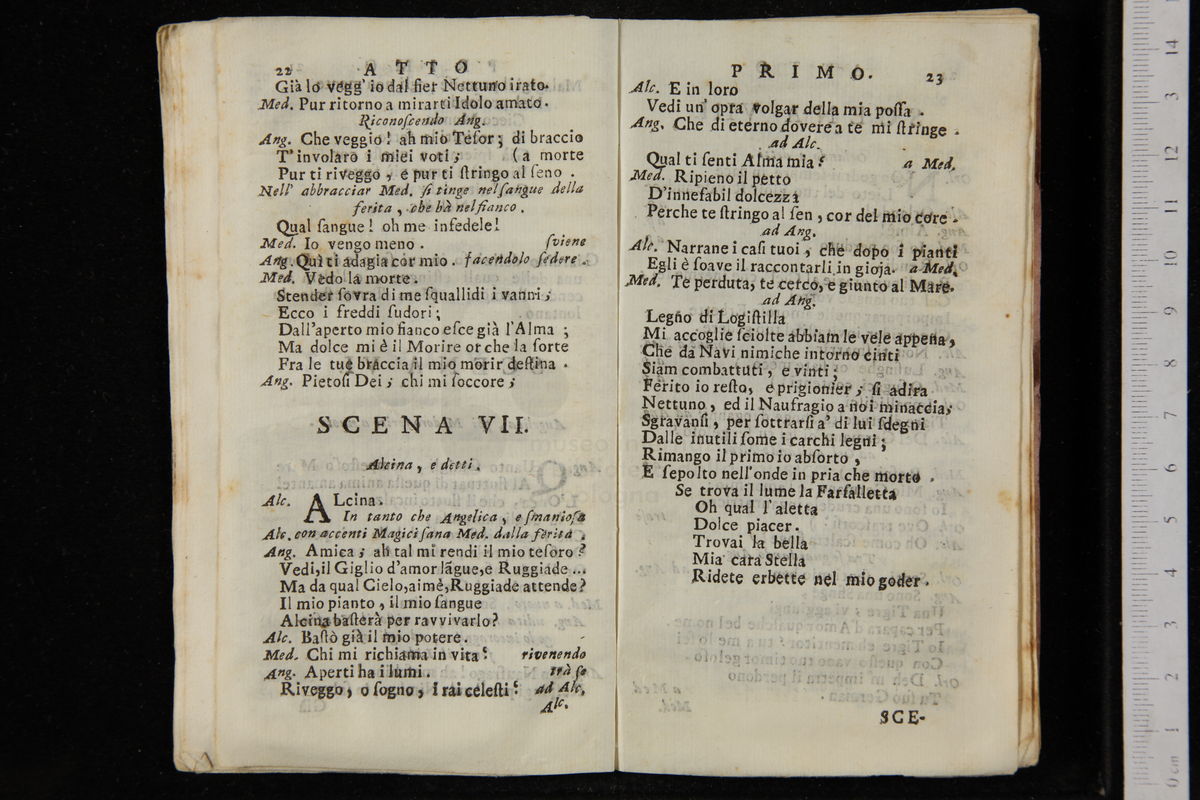 22 ATTO
Già lo vegg' io dal fier Nettuno irato.
Med. Pur ritorno a mirarti Idolo amato.
Riconoſcendo Ang.
Ang. Che veggio! ah mio Teſor; di braccio
T'involaro i miei voti; (a morte
Pur ti riveggo, e pur ti ſtringo al ſeno.
Nell' abbracciar Med. ſi tinge nel ſangue della
ferita, che hà nel fianco.
Qual ſangue! oh me infedele!
Med. Io vengo meno. ſviene
Ang. Quì ti adagia cor mio. facendolo ſedere.
Med. Vedo la morte.
Stender ſovra di me ſquallidi i vanni;
Ecco i freddi ſudori;
Dall'aperto mio fianco eſce già l'Alma;
Ma dolce mi è il Morire or che la ſorte
Fra le tue braccia il mio morir deſtina.
Ang. Pietoſi Dei; chi mi ſoccore;
SCENA VII.
Alcina, e detti.
Alc. ALcina.
In tanto che Angelica, e ſmanioſa
Alc. con accenti Magici ſana Med. dalla ferita.
Ang. Amica; ah tal mi rendi il mio teſoro?
Vedi, il Giglio d'amor lãgue, e Ruggiade...
Ma da qual Cielo, aimè, Ruggiade attende?
Il mio pianto, il mio ſangue
Alcina baſterà per ravvivarlo?
Alc. Baſtò già il mio potere.
Med. Chi mi richiama in vita? rivenendo
Ang. Aperti ha i lumi. trà ſe
Riveggo, o ſogno, i rai celeſti? ad Alc.
Alc.
PRIMO. 23
Alc. E in loro
Vedi un' opra volgar della mia poſſa.
Ang. Che di eterno dovere a te mi ſtringe.
ad Alc.
Qual ti ſenti Alma mia? a Med.
Med. Ripieno il petto
D'innefabil dolcezza
Perche te ſtringo al ſen, cor del mio core.
ad Ang.
Alc. Narrane i caſi tuoi, che dopo i pianti
Egli è ſoave il raccontarli in gioja. a Med.
Med. Te perduta, te cerco, e giunto al Mare.
ad Ang.
Legno di Logiſtilla
Mi accoglie ſciolte abbiam le vele appena,
Che da Navi nimiche intorno cinti
Siam combattuti, e vinti;
Ferito io reſto, e prigionier; ſi adira
Nettuno, ed il Naufragio a noi minaccia;
Sgravanſi, per ſottrarſi a' di lui ſdegni
Dalle inutili ſome i carchi legni;
Rimango il primo io abſorto,
E ſepolto nell'onde in pria che morto.
Se trova il lume la Farfalletta
Oh qual l'aletta
Dolce piacer.
Trovai la bella
Mia cara Stella
Ridete erbette nel mio goder.
SCE-